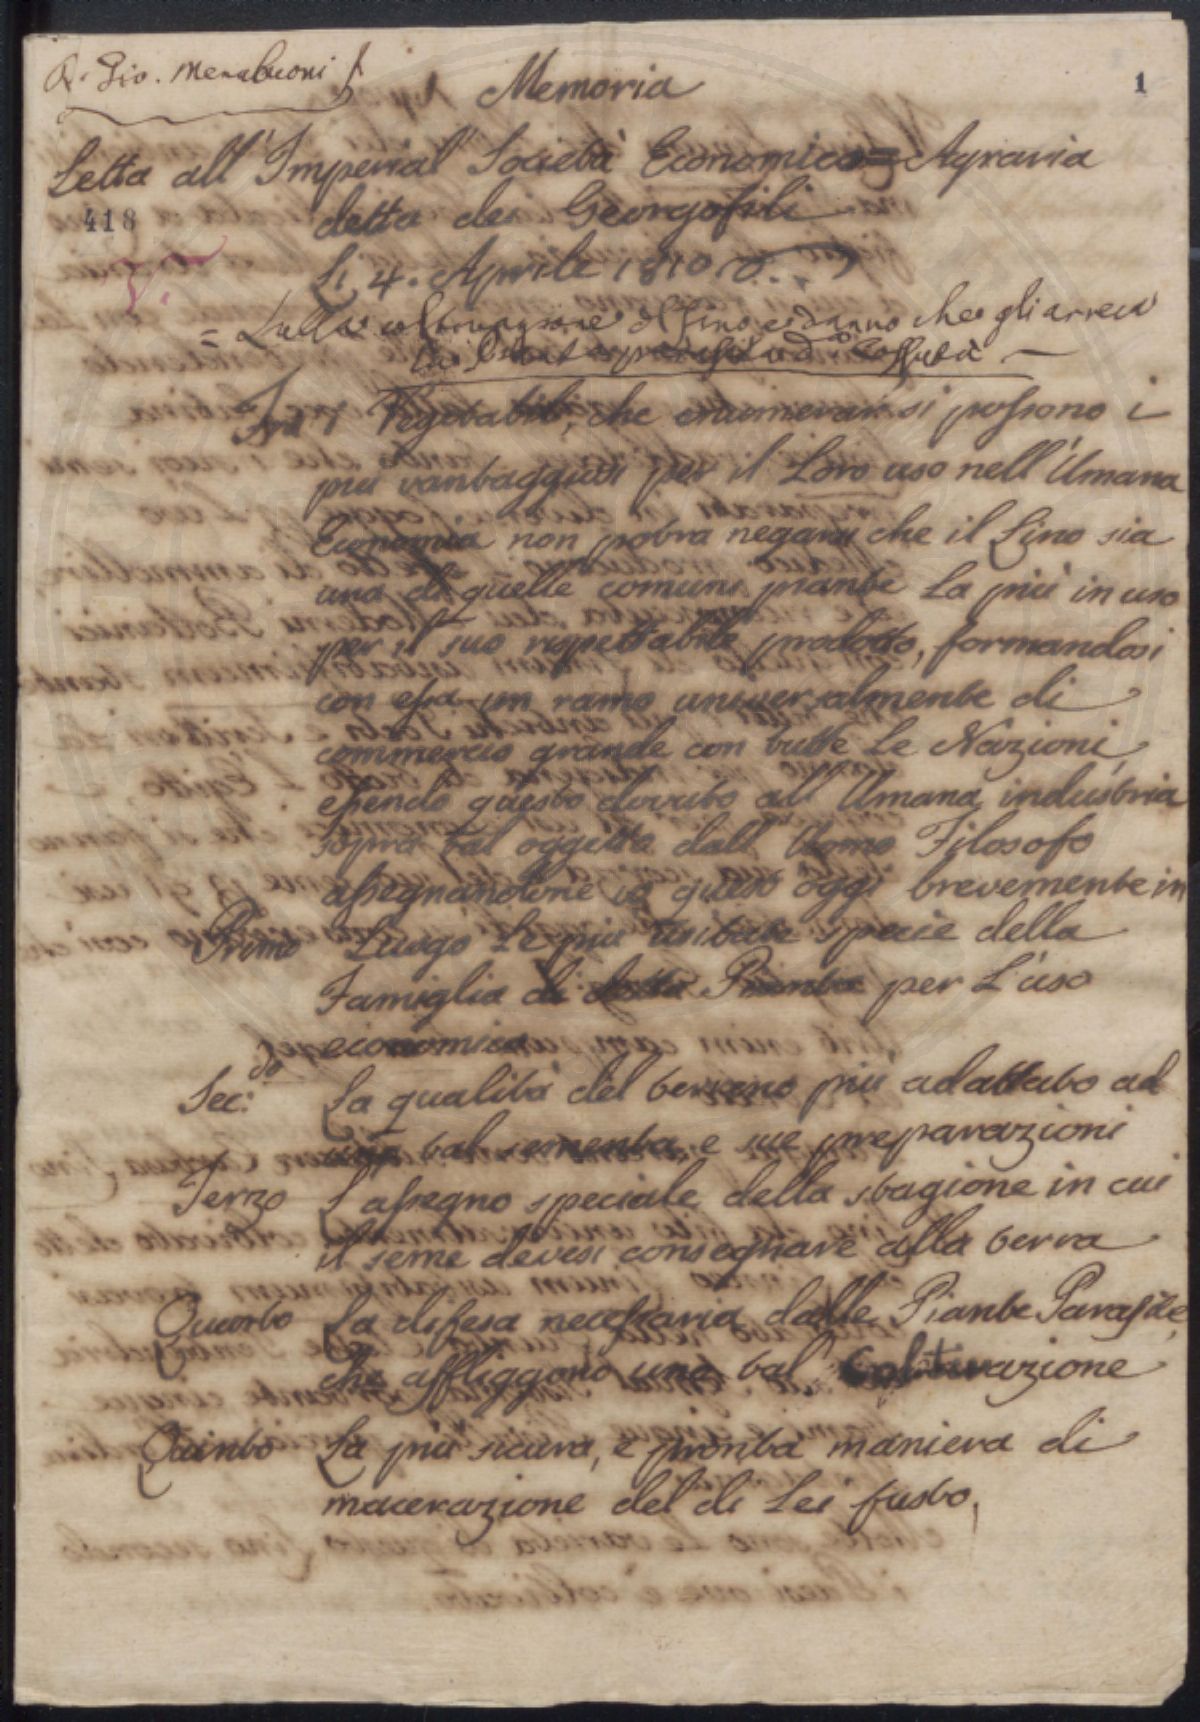 D. Gio. Menabuoni
1
Memoria
Letta all'Imperial Società Economico=Agraria
418
detta dei Georgofili
Li 4. Aprile 1810
= Sulla coltivazione del Lino e danno che gli arreca
la Cuscuta
Fra i Vegetabili, che enumerarsi possono i
più vantaggiosi per il Loro uso nell'Umana
Economia non potrà negarsi che il Lino sia
una di quelle comuni piante La più in uso
per il suo rispettabile prodotto, formandosi
con essa un ramo universalmente di
commercio grande con tutte Le Nazioni,
essendo questo dovuto all'Umana industria
sopra tal oggetto dall'Uomo Filosofo
assegnandone io quest'oggi brevemente in
Primo Luogo Le più usitate specie della
Famiglia di detta Pianta per L'uso
economico
Sec:do La qualità del terreno più adattato ad
una tal sementa, e sue preparazioni
Terzo L'assegno speciale della stagione in cui
il seme devesi consegnare alla terra
Quarto La difesa necessaria dalle Piante Parasite,
che affliggono una tal Coltivazione
Quinto La più sicura, e pronta maniera di
macerazione del di Lei fusto,